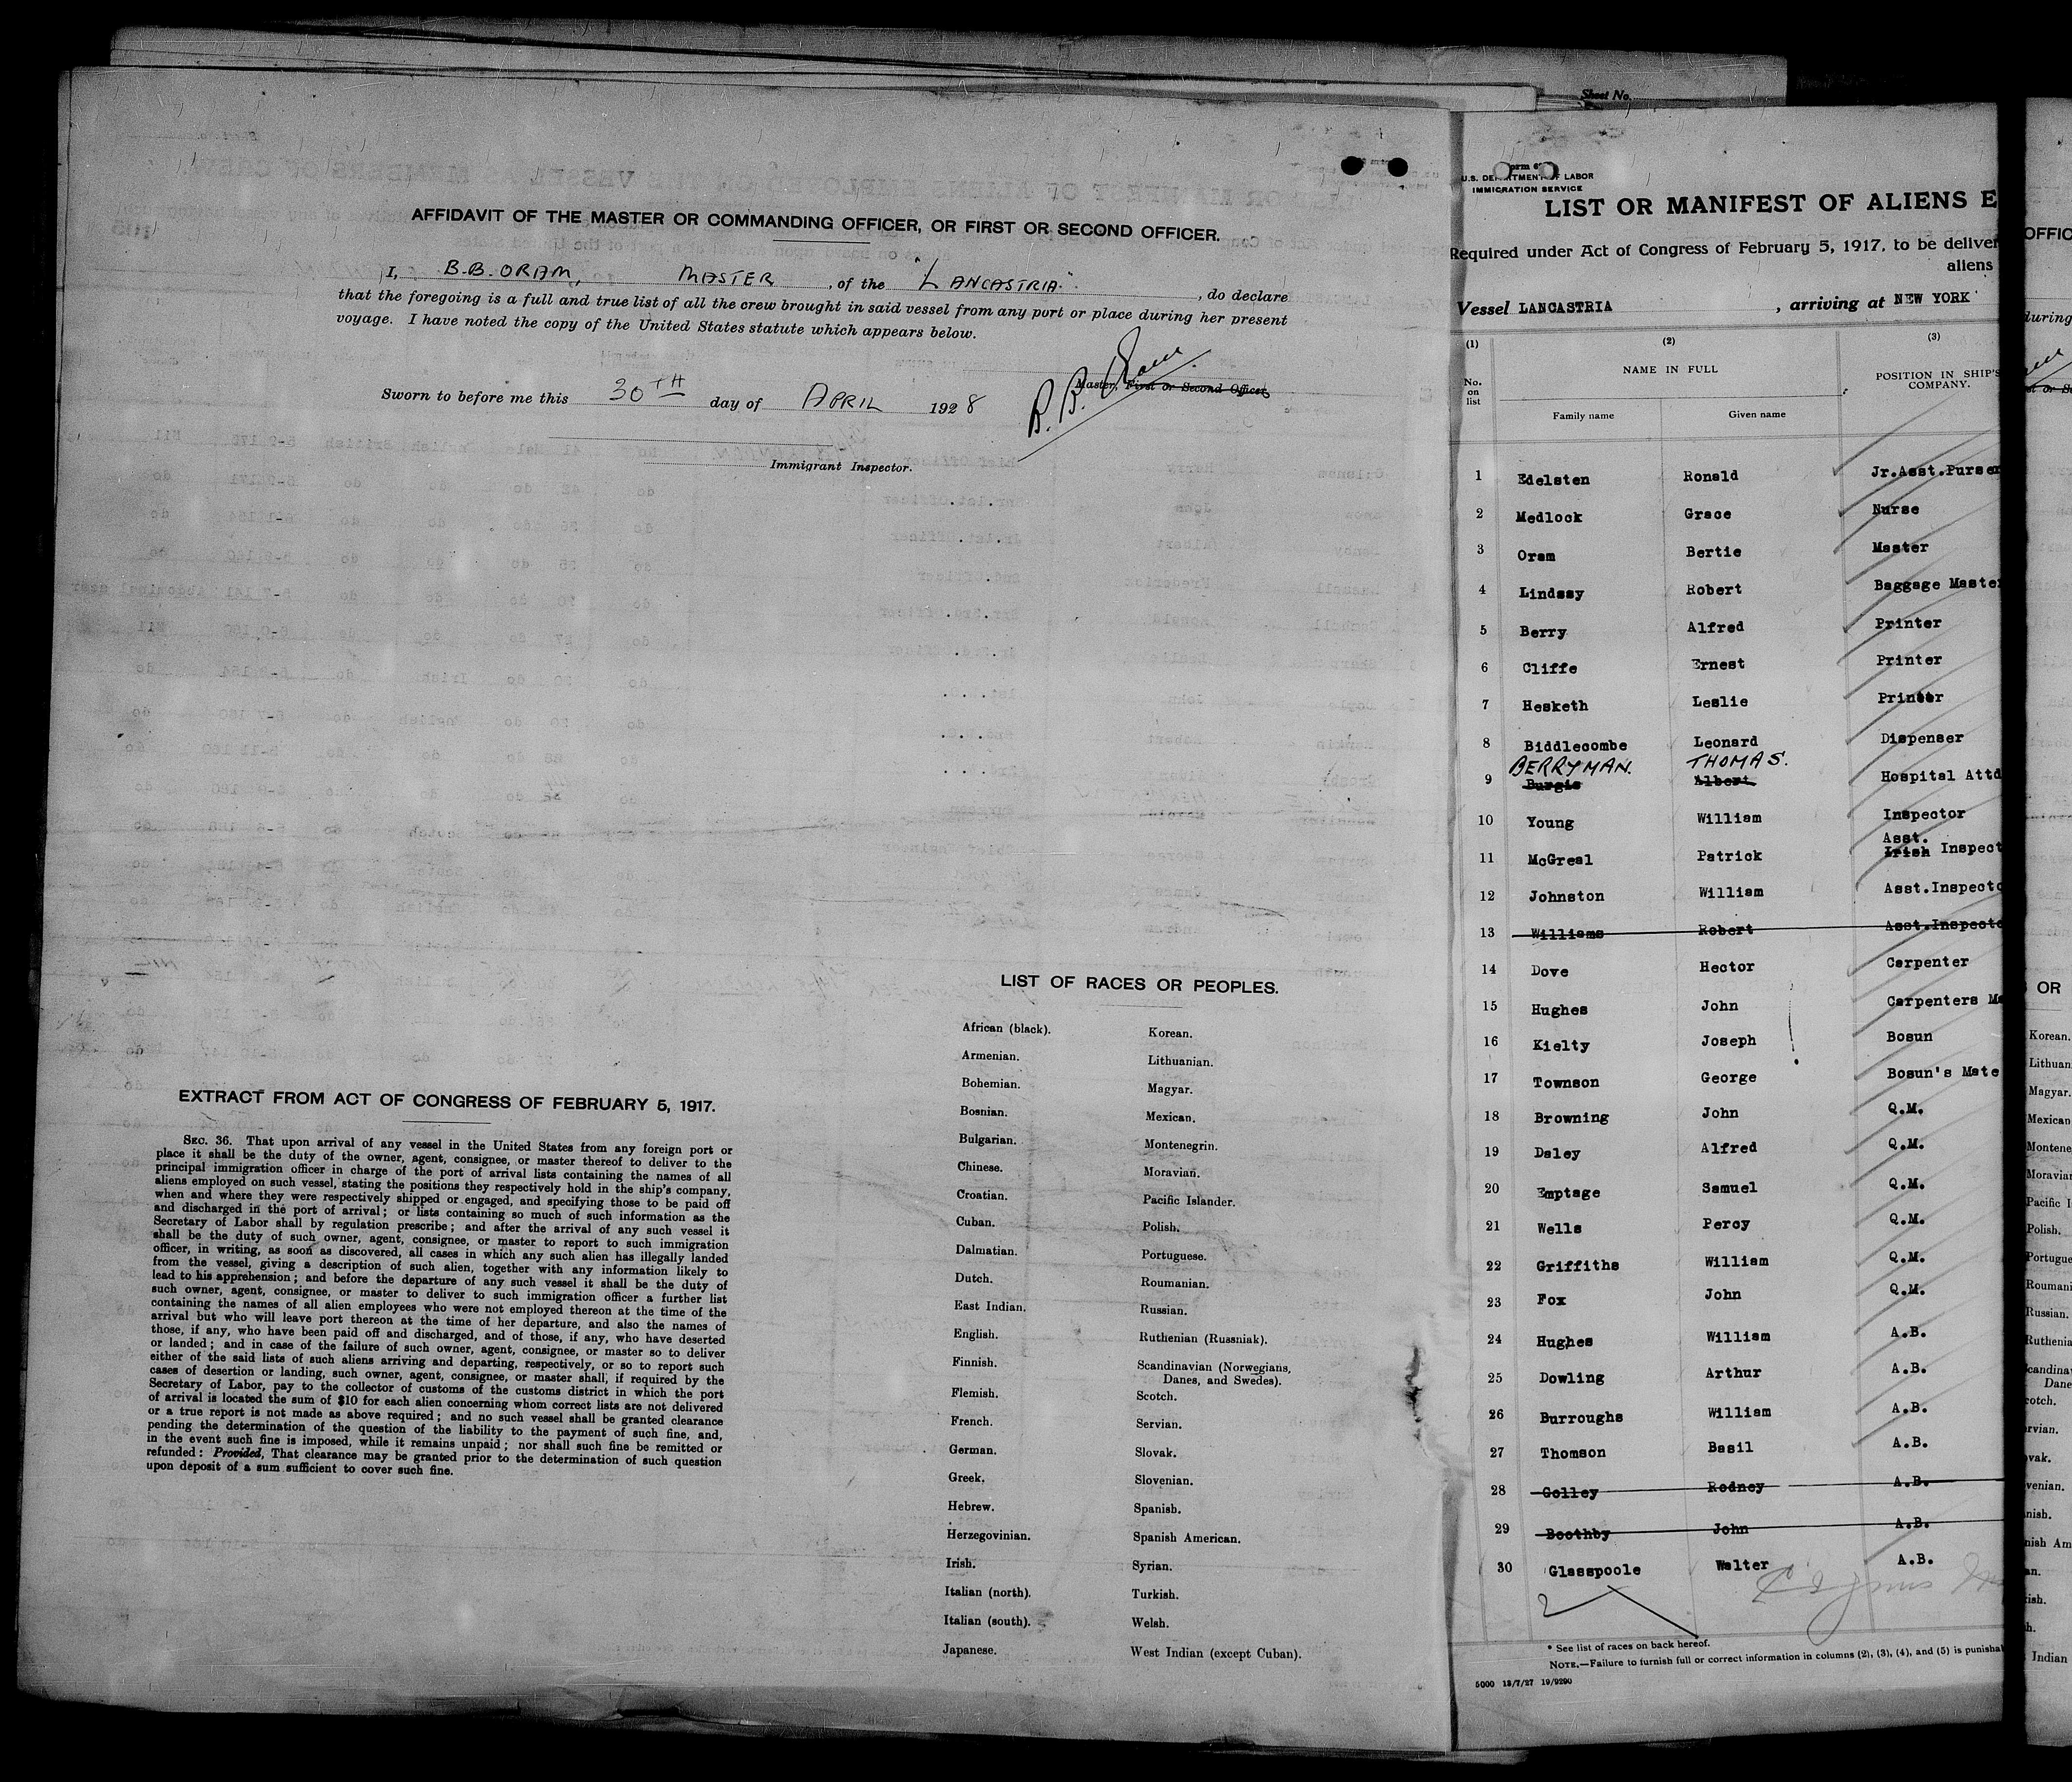 AFFIDAVIT OF THE MASTER OR COMMANDING OFFICER, OR FIRST OR SECOND OFFICER.
I, B.B. ORAM, MASTER, of the "LANCASTRIA", do declare
that the foregoing is a full and true list of all the crew brought in said vessel from any port or place during her present
voyage. I have noted the copy of the United States statute which appears below.
B. B. Oram
Master, First or Second Officer.
Sworn to before me this 30TH day of APRIL 1928
Immigrant Inspector.
LIST OF RACES OR PEOPLES.
African (black). Korean.
Armenian. Lithuanian.
Bohemian. Magyar.
Bosnian. Mexican.
Bulgarian. Montenegrin.
Chinese. Moravian.
Croatian. Pacific Islander.
Cuban. Polish.
Dalmatian. Portuguese.
Dutch. Roumanian.
East Indian. Russian.
English. Ruthenian (Russniak).
Finnish. Scandinavian (Norwegians,
Danes, and Swedes).
Flemish. Scotch.
French. Servian.
German. Slovak.
Greek. Slovenian.
Hebrew. Spanish.
Herzegovinian. Spanish American.
Irish. Syrian.
Italian (north). Turkish.
Italian (south). Welsh.
Japanese. West Indian (except Cuban).
EXTRACT FROM ACT OF CONGRESS OF FEBRUARY 5, 1917.
SEC. 36. That upon arrival of any vessel in the United States from any foreign port or
place it shall be the duty of the owner, agent, consignee, or master thereof to deliver to the
principal immigration officer in charge of the port of arrival lists containing the names of all
aliens employed on such vessel, stating the positions they respectively hold in the ship's company,
when and where they were respectively shipped or engaged, and specifying those to be paid off
and discharged in the port of arrival; or lists containing so much of such information as the
Secretary of Labor shall by regulation prescribe; and after the arrival of any such vessel it
shall be the duty of such owner, agent, consignee, or master to report to such immigration
officer, in writing, as soon as discovered, all cases in which any such alien has illegally landed
from the vessel, giving a description of such alien, together with any information likely to
lead to his apprehension; and before the departure of any such vessel it shall be the duty of
such owner, agent, consignee, or master to deliver to such immigration officer a further list
containing the names of all alien employees who were not employed thereon at the time of the
arrival but who will leave port thereon at the time of her departure, and also the names of
those, if any, who have been paid off and discharged, and of those, if any, who have deserted
or landed; and in case of the failure of such owner, agent, consignee, or master so to deliver
either of the said lists of such aliens arriving and departing, respectively, or so to report such
cases of desertion or landing, such owner, agent, consignee, or master shall, if required by the
Secretary of Labor, pay to the collector of customs of the customs district in which the port
of arrival is located the sum of $10 for each alien concerning whom correct lists are not delivered
or a true report is not made as above required; and no such vessel shall be granted clearance
pending the determination of the question of the liability to the payment of such fine, and,
in the event such fine is imposed, while it remains unpaid; nor shall such fine be remitted or
refunded: Provided, That clearance may be granted prior to the determination of such question
upon deposit of a sum sufficient to cover such fine.
Sheet No.
U.S. DEPARTMENT OF LABOR
IMMIGRATION SERVICE
LIST OR MANIFEST OF ALIENS E
Required under Act of Congress of February 5, 1917, to be deliver
aliens
Vessel LANCASTRIA, arriving at NEW YORK
(1) (2) (3)
No. on list NAME IN FULL POSITION IN SHIP'S COMPANY.
Family name Given name
1 Edelsten Ronald Jr.Asst.Purser
2 Medlock Grace Nurse
3 Oram Bertie Master
4 Lindsay Robert Baggage Master
5 Berry Alfred Printer
6 Cliffe Ernest Printer
7 Hesketh Leslie Printer
8 Biddlecombe Leonard Dispenser
BERRYMAN. THOMAS.
9 Burgis Albert Hospital Attd
10 Young William Inspector
Asst.
11 McGreal Patrick Irish Inspect
12 Johnston William Asst.Inspecto
13 Williams Robert Asst.Inspecto
14 Dove Hector Carpenter
15 Hughes John Carpenters Ma
16 Kielty Joseph Bosun
17 Townson George Bosun's Mate
18 Browning John Q.M.
19 Daley Alfred Q.M.
20 Emptage Samuel Q.M.
21 Wells Percy Q.M.
22 Griffiths William Q.M.
23 Fox John Q.M.
24 Hughes William A.B.
25 Dowling Arthur A.B.
26 Burroughs William A.B.
27 Thomson Basil A.B.
28 Golley Rodney A.B.
29 Boothby John A.B.
30 Glasspoole Walter A.B.
* See list of races on back hereof.
NOTE.—Failure to furnish full or correct information in columns (2), (3), (4), and (5) is punishal
5000 13/7/27 19/9290